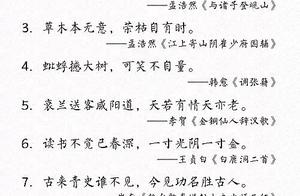 ——孟浩然《与诸子登岘山》
3. 草木本无意，荣枯自有时。
——孟浩然《江上寄山阴崔少府国辅》
4. 蚍蜉撼大树，可笑不自量。
——韩愈《调张籍》
5. 衰兰送客咸阳道，天若有情天亦老。
——李贺《金铜仙人辞汉歌》
6. 读书不觉已春深，一寸光阴一寸金。
——王贞白《白鹿洞二首》
7. 古来青史谁不见，今见功名胜古人。